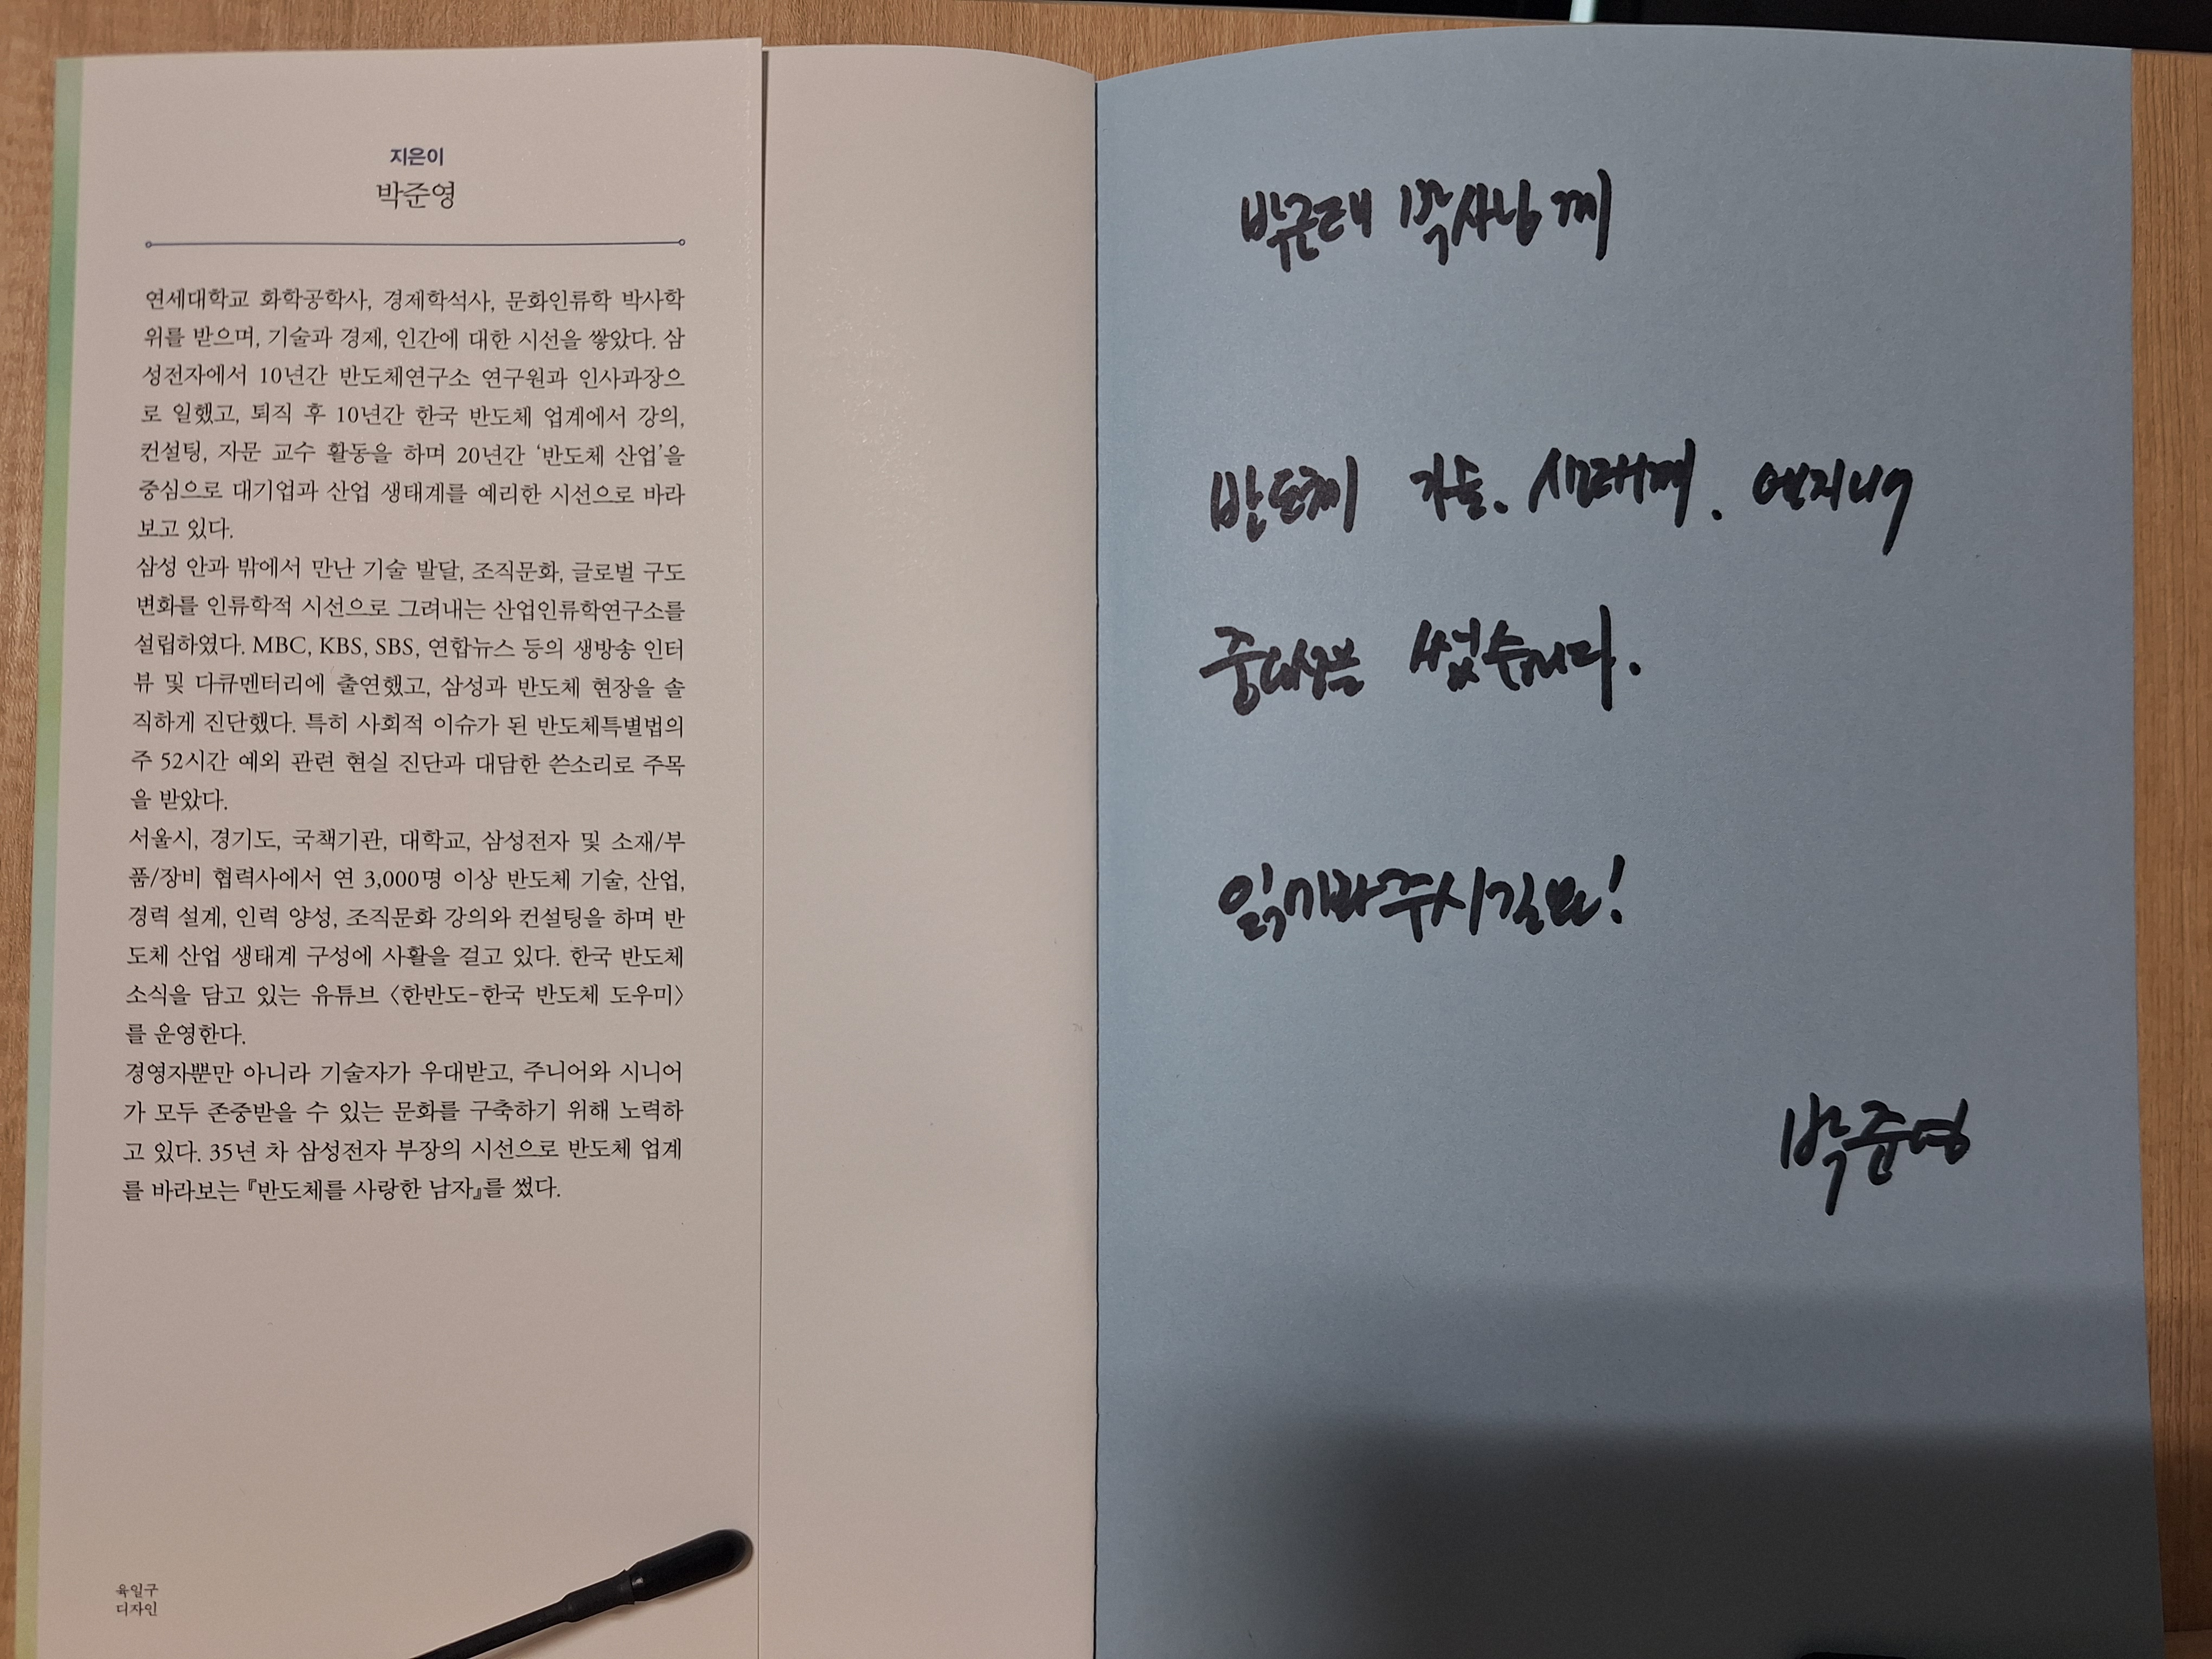 지은이
박준영
연세대학교 화학공학사, 경제학석사, 문화인류학 박사학
위를 받으며, 기술과 경제, 인간에 대한 시선을 쌓았다. 삼
성전자에서 10년간 반도체연구소 연구원과 인사과장으
로 일했고, 퇴직 후 10년간 한국 반도체 업계에서 강의,
컨설팅, 자문 교수 활동을 하며 20년간 ‘반도체 산업’을
중심으로 대기업과 산업 생태계를 예리한 시선으로 바라
보고 있다.
삼성 안과 밖에서 만난 기술 발달, 조직문화, 글로벌 구도
변화를 인류학적 시선으로 그려내는 산업인류학연구소를
설립하였다. MBC, KBS, SBS, 연합뉴스 등의 생방송 인터
뷰 및 다큐멘터리에 출연했고, 삼성과 반도체 현장을 솔
직하게 진단했다. 특히 사회적 이슈가 된 반도체특별법의
주 52시간 예외 관련 현실 진단과 대담한 쓴소리로 주목
을 받았다.
서울시, 경기도, 국책기관, 대학교, 삼성전자 및 소재/부
품/장비 협력사에서 연 3,000명 이상 반도체 기술, 산업,
경력 설계, 인력 양성, 조직문화 강의와 컨설팅을 하며 반
도체 산업 생태계 구성에 사활을 걸고 있다. 한국 반도체
소식을 담고 있는 유튜브 〈한반도-한국 반도체 도우미〉
를 운영한다.
경영자뿐만 아니라 기술자가 우대받고, 주니어와 시니어
가 모두 존중받을 수 있는 문화를 구축하기 위해 노력하
고 있다. 35년 차 삼성전자 부장의 시선으로 반도체 업계
를 바라보는 『반도체를 사랑한 남자』를 썼다.
육일구
디자인
박근태 박사님께
반도체 기술. 생태계. 엔지니어
썼습니다.
박준영